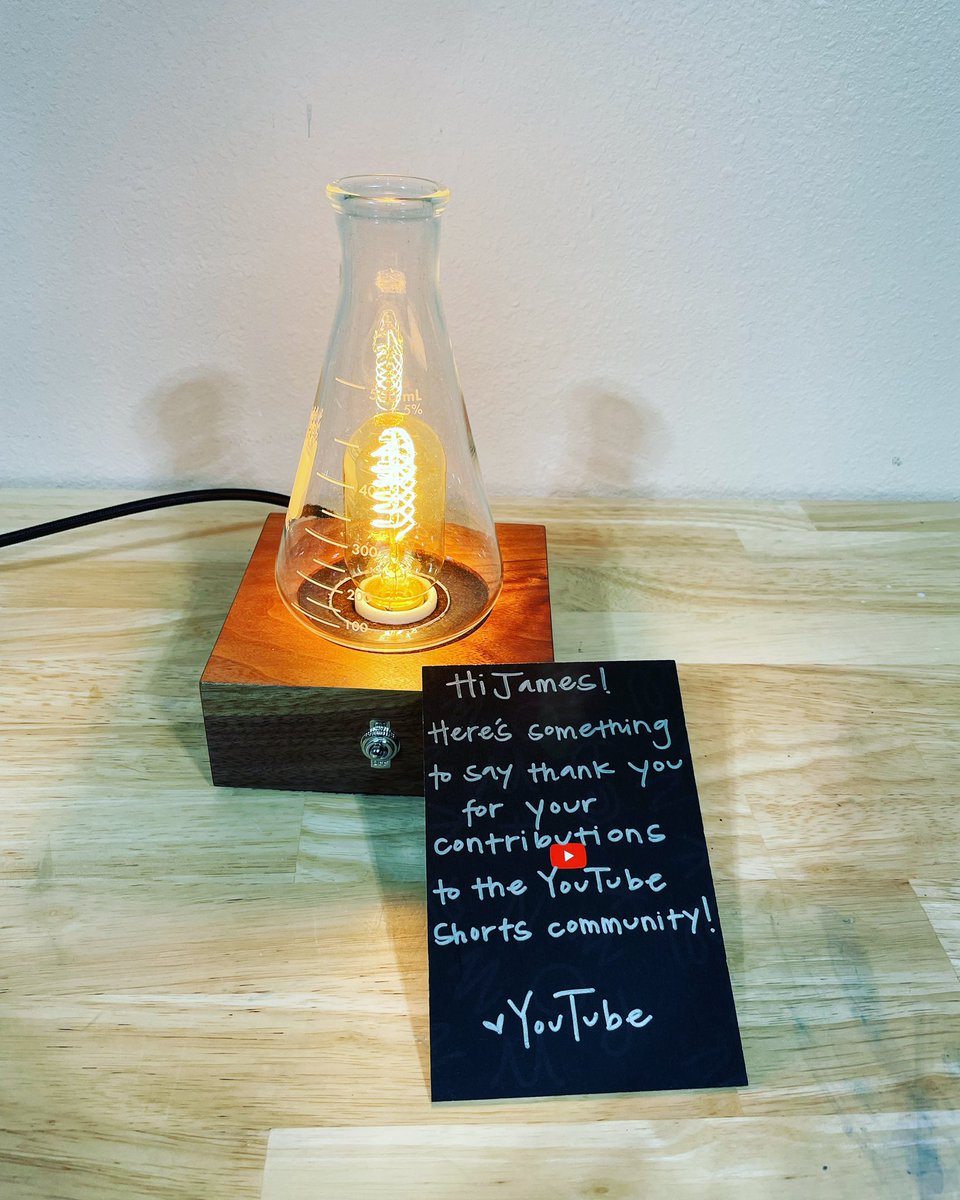 500 mL
5%
400
300
200
100
Hi James!
Here's something
to say thank you
for your
contributions
to the YouTube
Shorts community!
YouTube